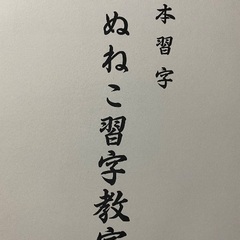 本習字
ぬねこ習字教室